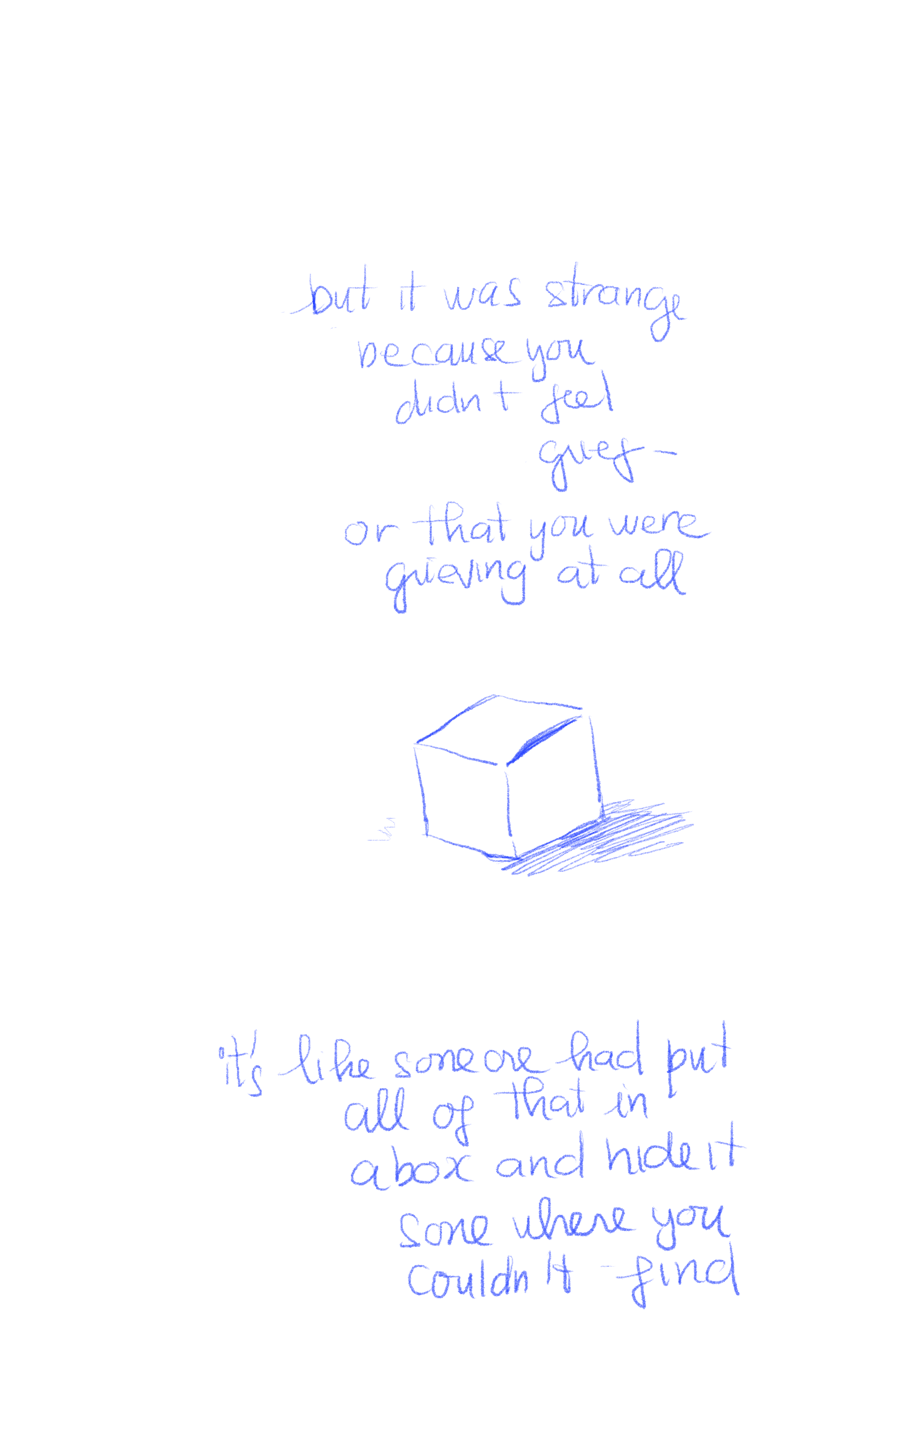 but it was strange
because you
didn't feel
grief -
or that you were
grieving at all
it's like someone had put
all of that in
a box and hide it
some where you
couldn't find